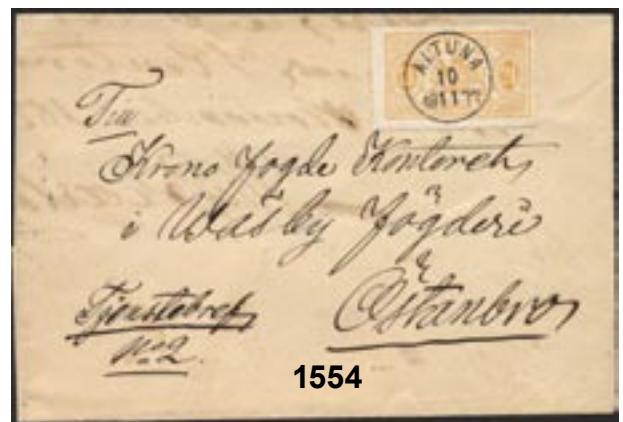 ALTUNA
10
11
Till
Krono Fogde Kontoret
i Wäsby Fögderi
Östanbro
Tjenstebref
No 2.
1554